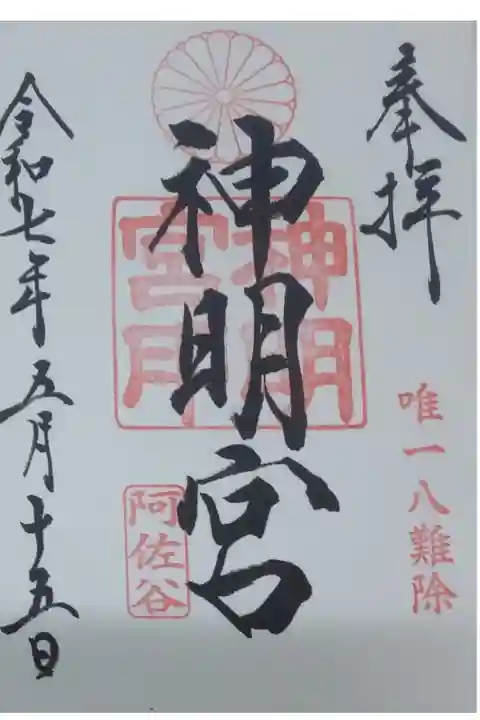 奉拝
唯一八難除
神明宮
神明宮印
阿佐谷
令和七年五月十五日